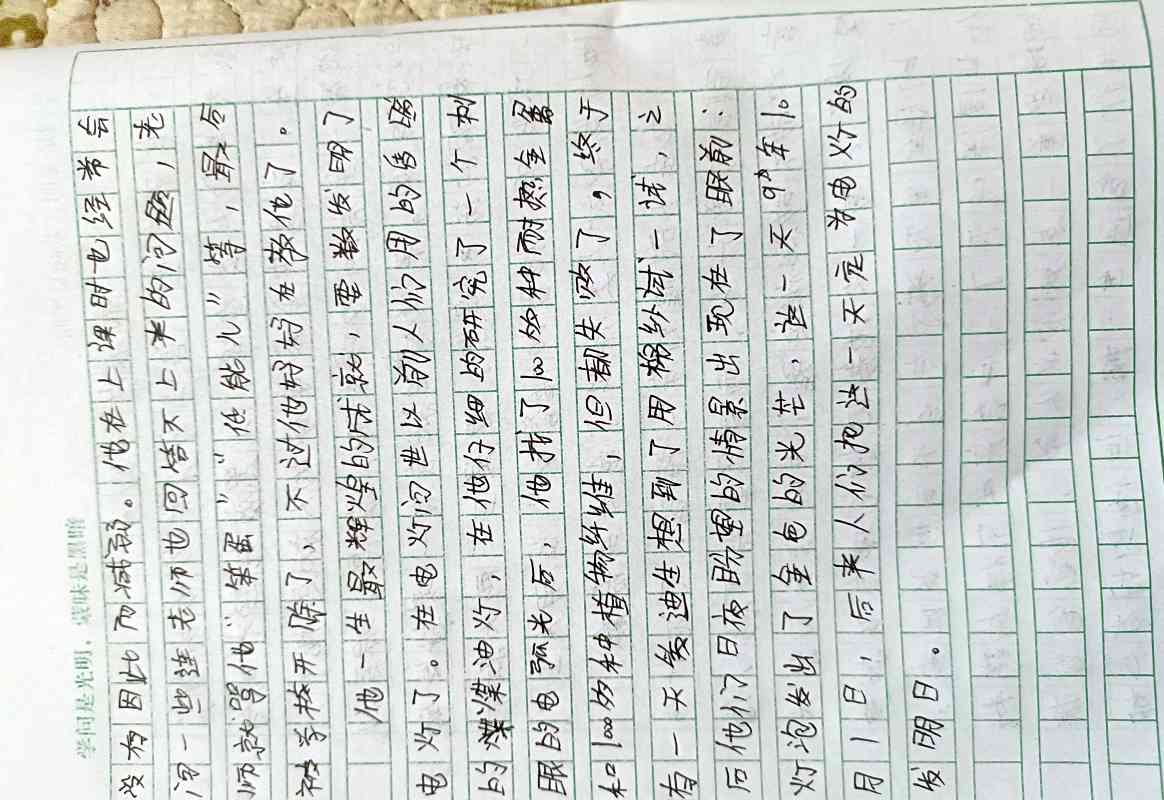 学问是光明，蒙昧是黑暗
没有因此而减弱。他在上课时也经常会
问一些连老师也回答不上来的问题，老
师就骂他“笨蛋”“低能儿”等，最后
被学校开除了，不过他妈妈在教他了。
他一生最辉煌的成就，要数发明了
电灯了。在电灯问世以前人们用的传照
的煤油灯，在他仔细的研究了一个刺
眼的电弧光后，他找了1600多种耐热金属
和1000多种植物纤维，但都失败了，终于
有一天爱迪生想到了用棉纱试一试，之
后他们日夜盼望的情景出现在了眼前：
灯泡发出了金色的光芒，这一天 年10
月1日，后来人们把这一天定为电灯的
发明日。